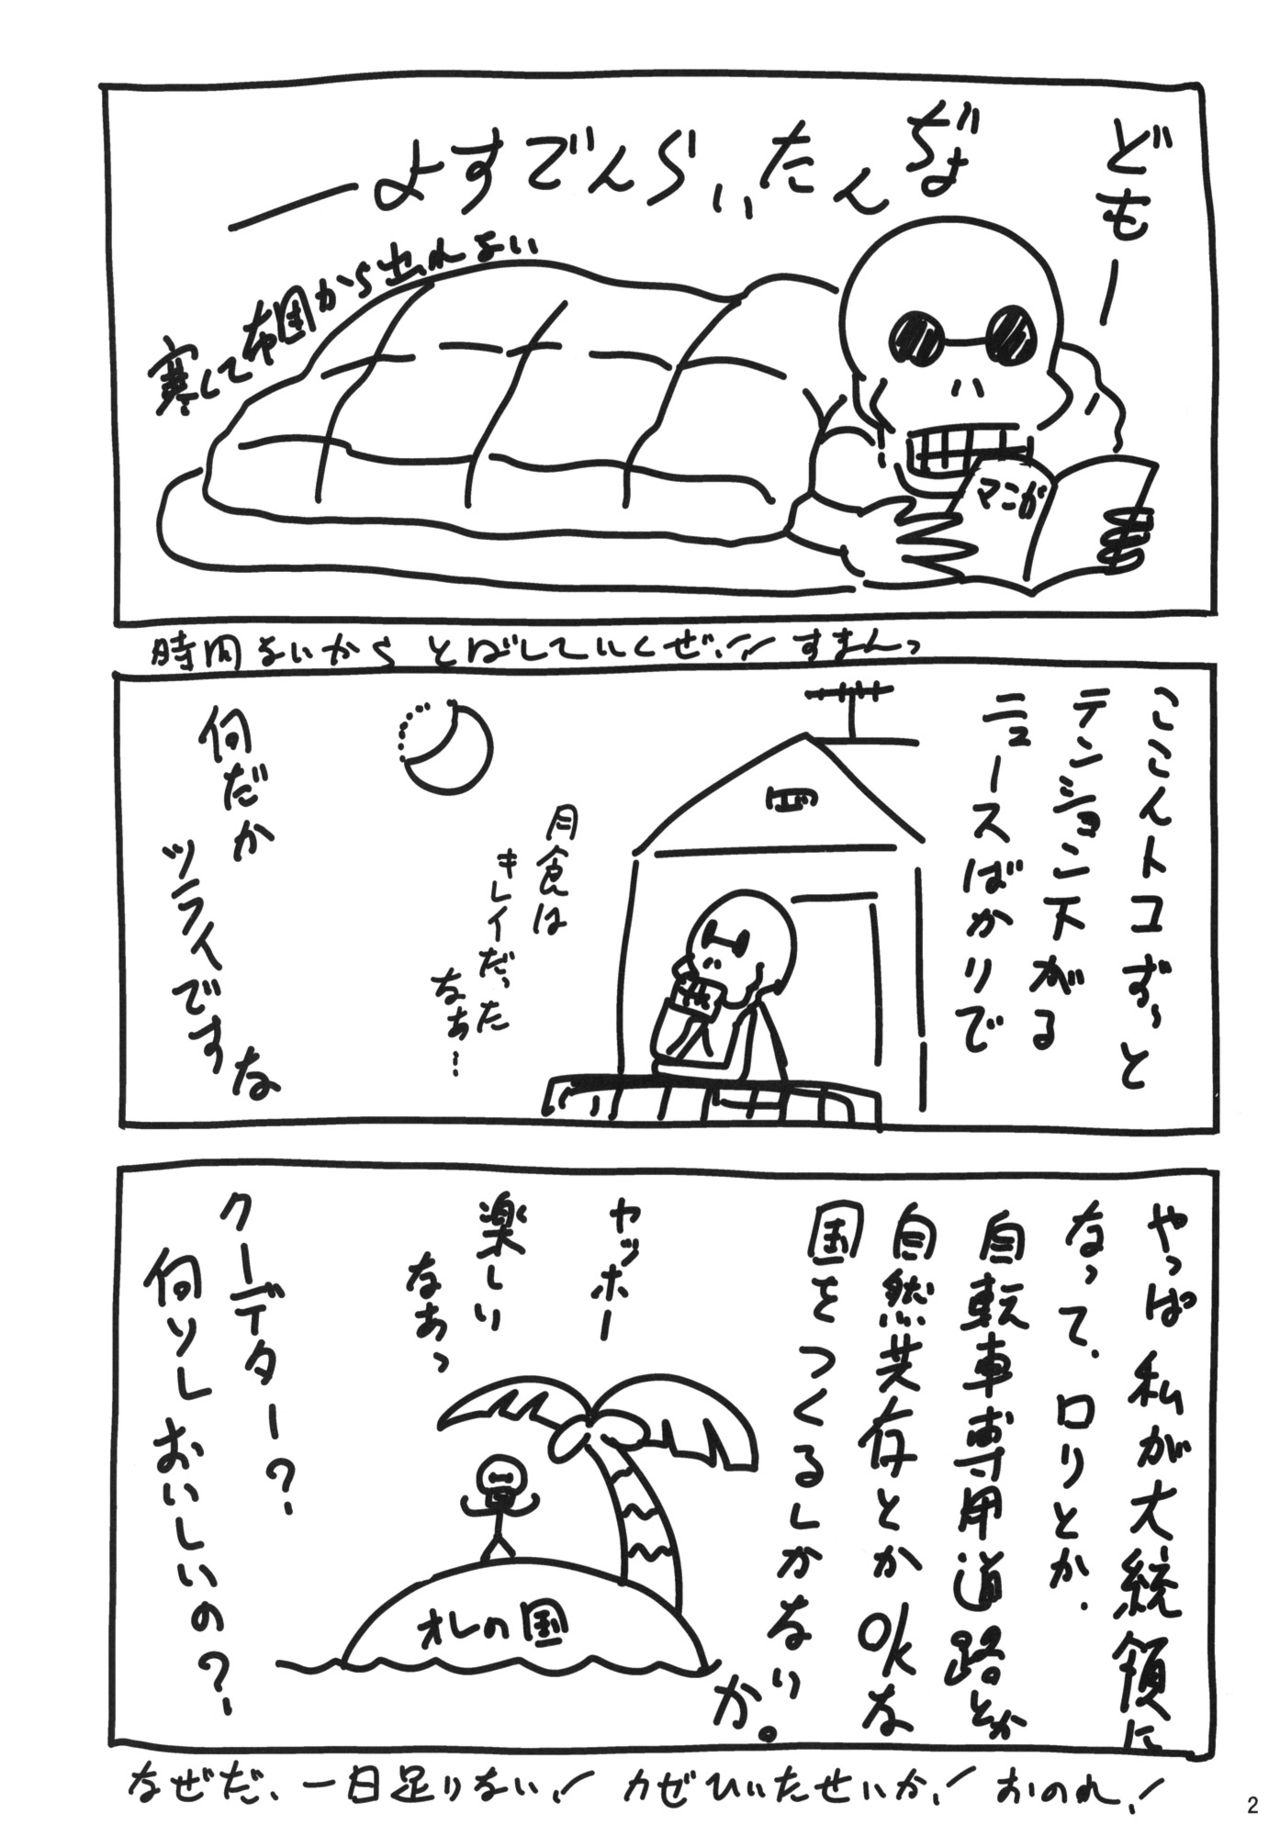 どもー
ぢょ
たん
いらんですよー
寒くて布団から出れない
マンが
時間ないから とばしていくぜ!! すまんっ
ここんトコずっと
テンション下がる
ニュースばかりで
月食は
キレイだった
なぁ…
何だか
ツライですな
やっぱ 私が大統領に
なって、ロリとか、
自転車専用道路とか
自然共存とかOKな
国をつくるしかないか。
ヤッホー
楽しい
なあっ
オレの国
クーデター?
何ソレおいしいの?
なぜだ、一日足りない! カゼひいたせいか! おのれ!
2